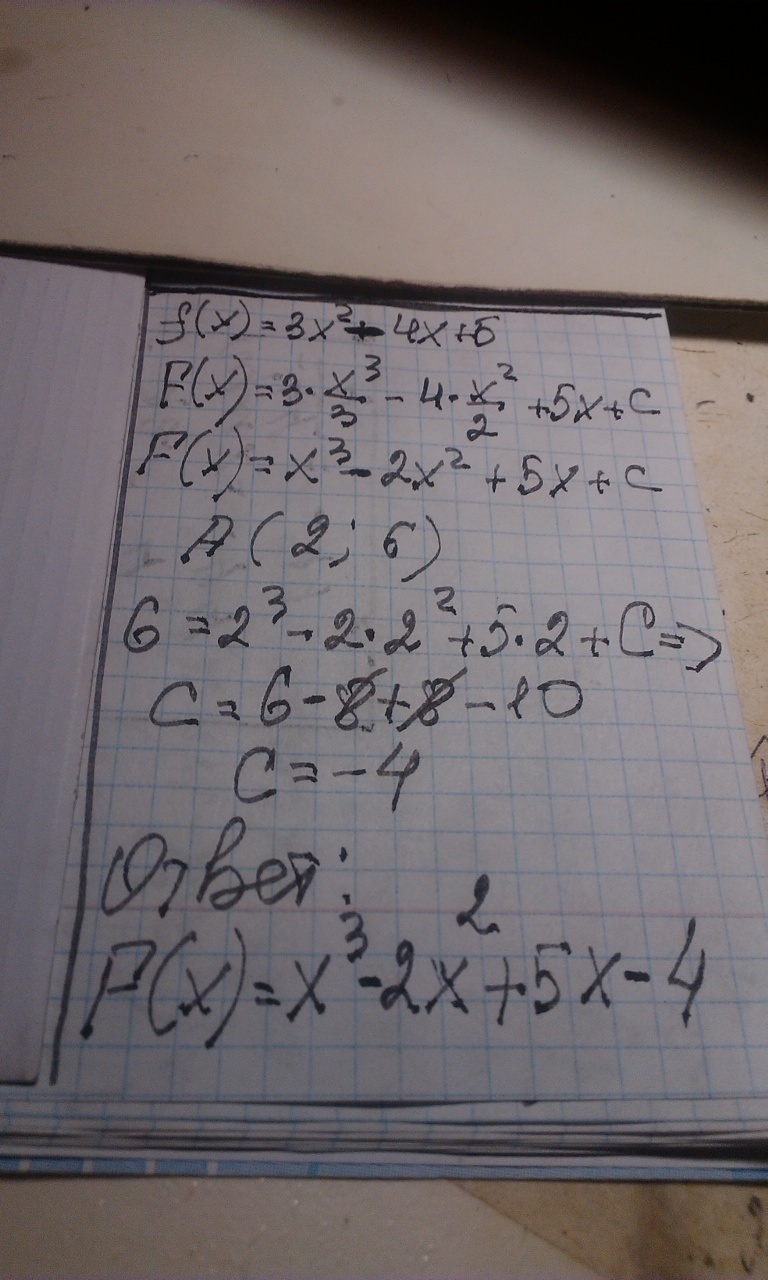 f(x) = 3x² - 4x + 5
F(x) = 3 · x³/3 - 4 · x²/2 + 5x + C
F(x) = x³ - 2x² + 5x + C
A ( 2 ; 6 )
6 = 2³ - 2 · 2² + 5 · 2 + C =>
C = 6 - 8 + 8 - 10
C = - 4
Ответ:
F(x) = x³ - 2x² + 5x - 4